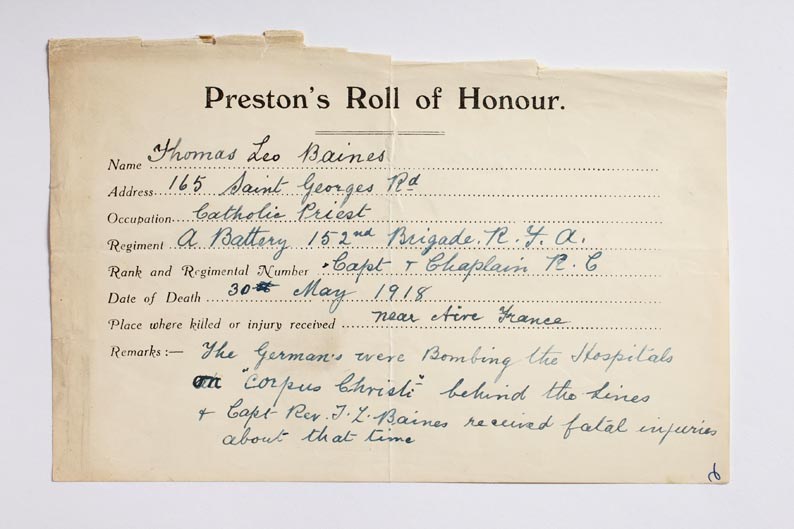 Preston's Roll of Honour.
Name Thomas Leo Baines
Address 165 Saint Georges Rd
Occupation Catholic Priest
Regiment A Battery 152nd Brigade. R. F. A.
Rank and Regimental Number Capt + Chaplain R. C
Date of Death 30th May 1918
Place where killed or injury received near Aire France
Remarks :— The German's were Bombing the Hospitals
on "Corpus Christi" behind the Lines
+ Capt Rev. T. L. Baines received fatal injuries
about that time